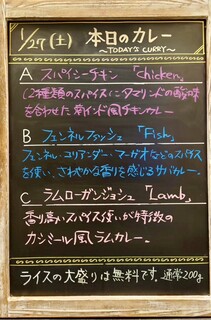 1/27(土) 本日のカレー
〜TODAY'S CURRY〜
A スパイシーチキン 「Chicken」
12種類のスパイスにタマリンドの酸味
を合わせた南インド風チキンカレー
B フェンネルフィッシュ 「Fish」
フェンネル・コリアンダー・マーガオなどのスパイス
を使い、さわやかな香りを感じるサバカレー。
C ラムローガンジョシュ 「Lamb」
香り高いスパイス使いが特徴の
カシミール風ラムカレー。
ライスの大盛りは無料です。通常200g